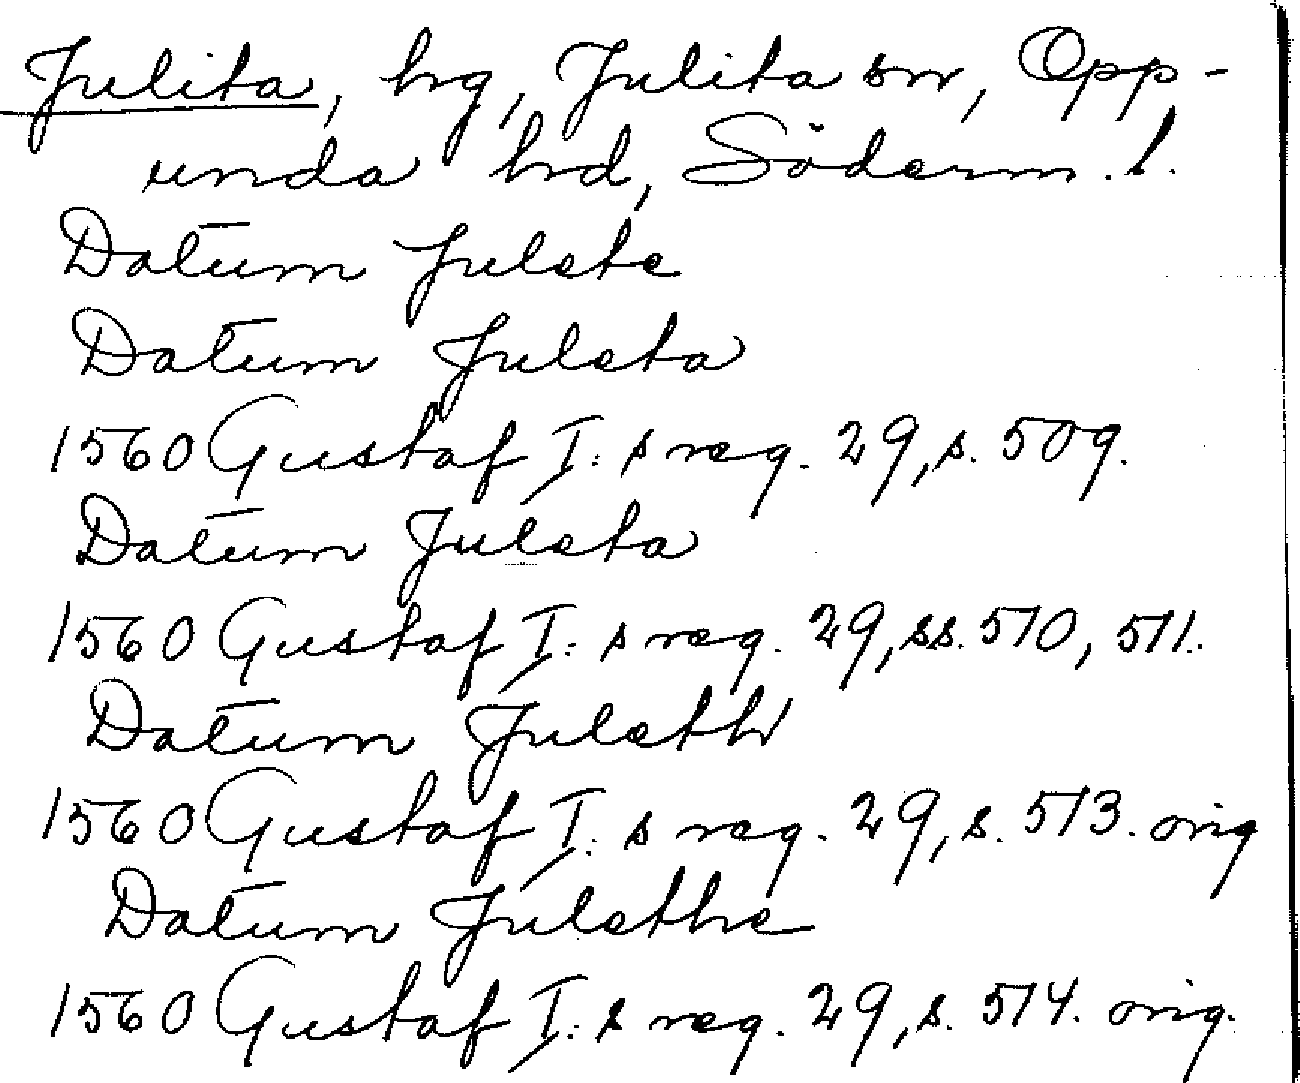 Julita, hrg, Julita sn, Opp-
unda hrd, Söderm. l.
Datum Julete
Datum Juleta
1560 Gustaf I:s reg. 29, s. 509.
Datum Juleta
1560 Gustaf I:s reg. 29, ss. 510, 511.
Datum Juleth
1560 Gustaf I:s reg. 29, s. 513. orig
Datum Julethe
1560 Gustaf I:s reg. 29, s. 514. orig.